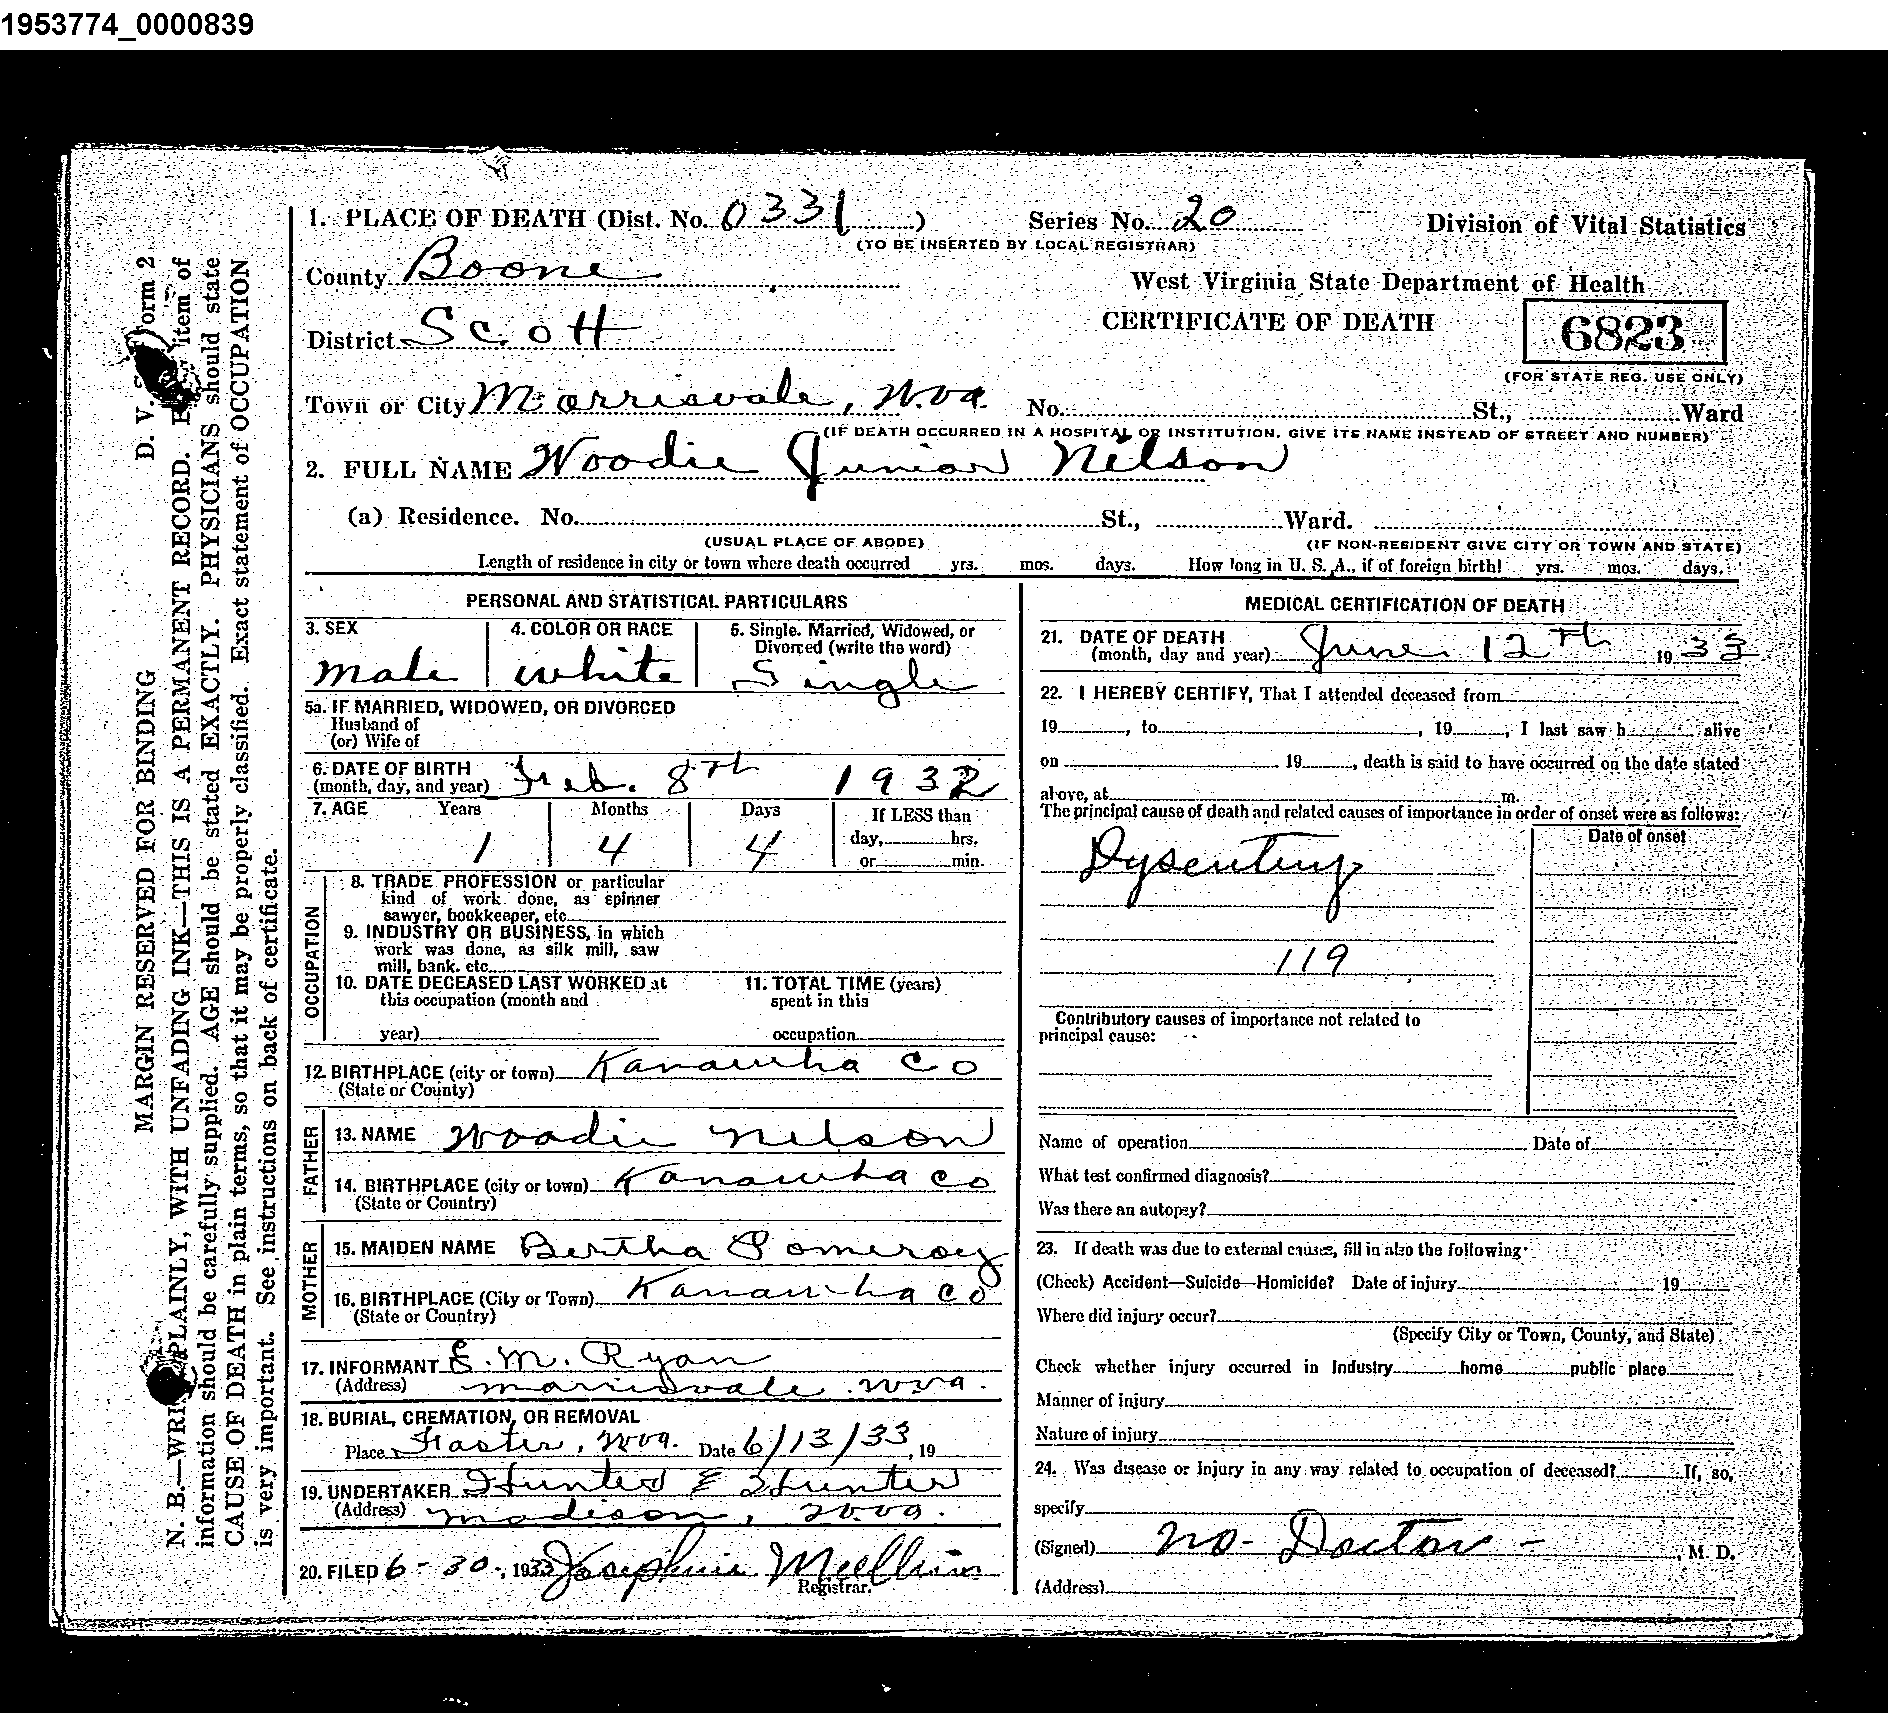 1953774_0000839
1. PLACE OF DEATH (Dist. No. 0331 ) Series No. 20 Division of Vital Statistics
(TO BE INSERTED BY LOCAL REGISTRAR)
County Boone
West Virginia State Department of Health
CERTIFICATE OF DEATH
6823
(FOR STATE REG. USE ONLY)
District Scott
Town or City Morrisvale, W.va. No. St., Ward
(IF DEATH OCCURRED IN A HOSPITAL OR INSTITUTION, GIVE ITS NAME INSTEAD OF STREET AND NUMBER)
2. FULL NAME Woodie Junior Nelson
(a) Residence. No. St., Ward.
(USUAL PLACE OF ABODE) (IF NON-RESIDENT GIVE CITY OR TOWN AND STATE)
Length of residence in city or town where death occurred yrs. mos. days. How long in U. S. A., if of foreign birth! yrs. mos. days.
PERSONAL AND STATISTICAL PARTICULARS
3. SEX 4. COLOR OR RACE 5. Single. Married, Widowed, or
Divorced (write the word)
male white Single
5a. IF MARRIED, WIDOWED, OR DIVORCED
Husband of
(or) Wife of
6. DATE OF BIRTH
(month, day, and year) Feb. 8th 1932
7. AGE Years Months Days If LESS than
1 4 4 day, hrs.
or min.
OCCUPATION
8. TRADE PROFESSION or particular
kind of work done, as spinner
sawyer, bookkeeper, etc
9. INDUSTRY OR BUSINESS, in which
work was done, as silk mill, saw
mill, bank. etc
10. DATE DECEASED LAST WORKED at 11. TOTAL TIME (years)
this occupation (month and spent in this
year) occupation
12. BIRTHPLACE (city or town) Kanawha Co
(State or County)
FATHER
13. NAME Woodie Nelson
14. BIRTHPLACE (city or town) Kanawha Co
(State or Country)
MOTHER
15. MAIDEN NAME Bertha Pomeroy
16. BIRTHPLACE (City or Town) Kanawha Co
(State or Country)
17. INFORMANT E. M. Ryan
(Address) morrisvale W.va.
18. BURIAL, CREMATION, OR REMOVAL
Place Foster, W.va. Date 6/13/33, 19
19. UNDERTAKER Hunter & Hunter
(Address) madison, W.va.
20. FILED 6-30-, 1933 Josephine
Registrar.
MEDICAL CERTIFICATION OF DEATH
21. DATE OF DEATH
(month, day and year) June 12th 1933
22. I HEREBY CERTIFY, That I attended deceased from
19 , to , 19 , I last saw h alive
on 19 , death is said to have occurred on the date stated
above, at m.
The principal cause of death and related causes of importance in order of onset were as follows:
Date of onset
Dysentery
119
Contributory causes of importance not related to
principal cause:
Name of operation Date of
What test confirmed diagnosis?
Was there an autopsy?
23. If death was due to external causes, fill in also the following:
(Check) Accident—Suicide—Homicide? Date of injury 19
Where did injury occur?
(Specify City or Town, County, and State)
Check whether injury occurred in Industry home public place
Manner of injury
Nature of injury
24. Was disease or injury in any way related to occupation of deceased? If, so,
specify
(Signed) no- Doctor- , M. D.
(Address)
D. V. Form 2
MARGIN RESERVED FOR BINDING
N. B.—WRITE PLAINLY, WITH UNFADING INK—THIS IS A PERMANENT RECORD. item of
information should be carefully supplied. AGE should be stated EXACTLY. PHYSICIANS should state
CAUSE OF DEATH in plain terms, so that it may be properly classified. Exact statement of OCCUPATION
is very important. See instructions on back of certificate.